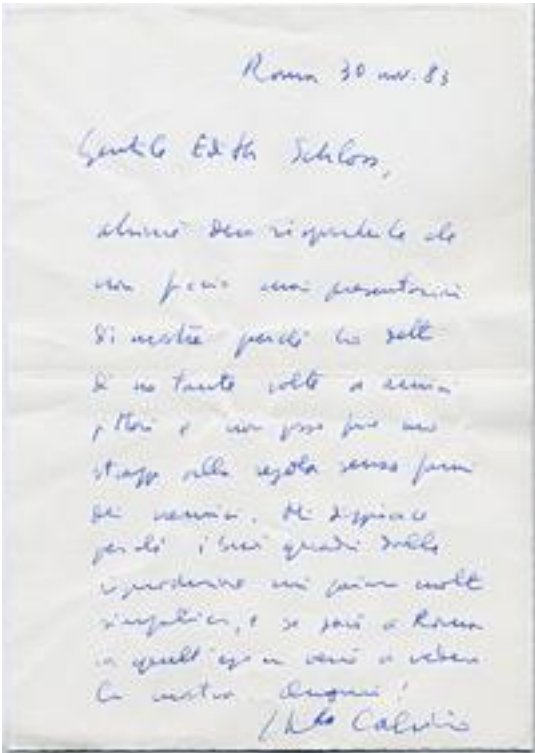 Roma 30 nov. 83
Gentile Edith Schloss,
ahimè devo risponderle che
non faccio mai presentazioni
di mostre perché ho detto
di no tante volte a amici
pittori e non posso fare uno
strappo alla regola senza farmi
dei nemici. Mi dispiace
perché i suoi quadri dalle
riproduzioni mi paiono molto
simpatici, e se sarò a Roma
in quell'epoca verrò a vedere
la mostra. Auguri!
Italo Calvino